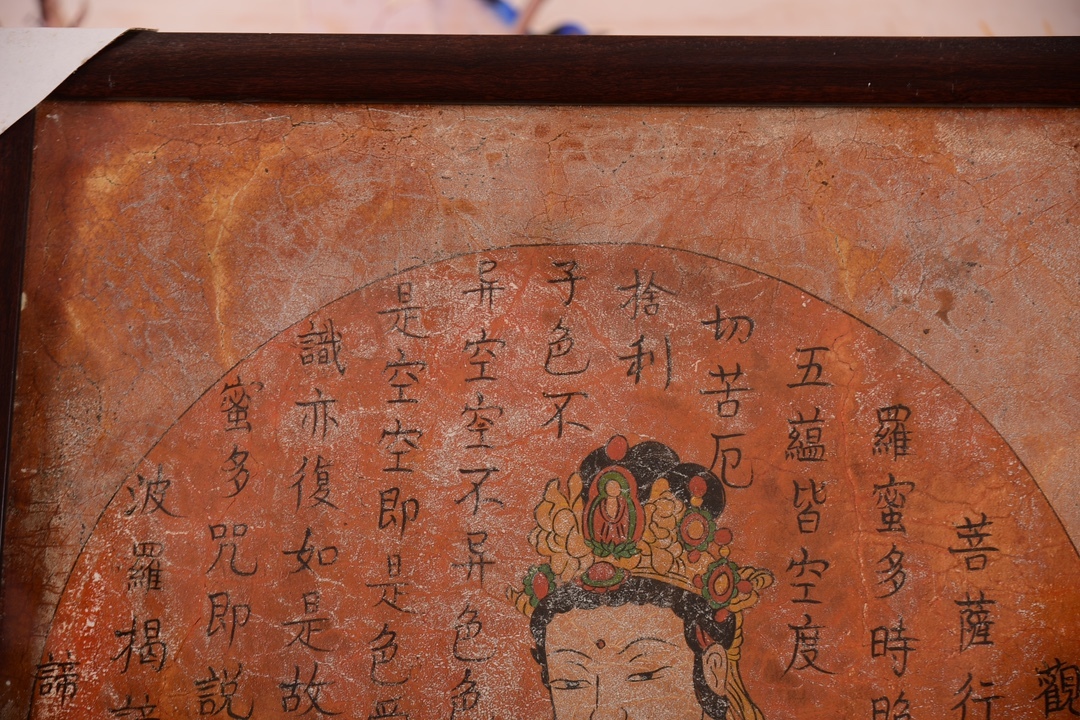 觀
菩薩行
羅蜜多時照
五蘊皆空度
切苦厄
捨利
子色不
异空空不异色色
是空空即是色受
識亦復如是故
蜜多咒即説
波羅揭諦
諦